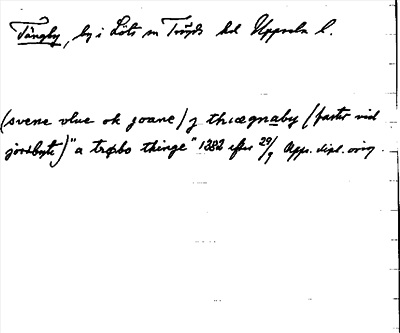 Tängby, by i Löts sn Trögds hd Uppsala l.
(svene vlue ok joane) j thiægnaby (faster vid
jordbyte) "a trøbo thinge" 1382 efter 29/9 Upps. dipl. orig.